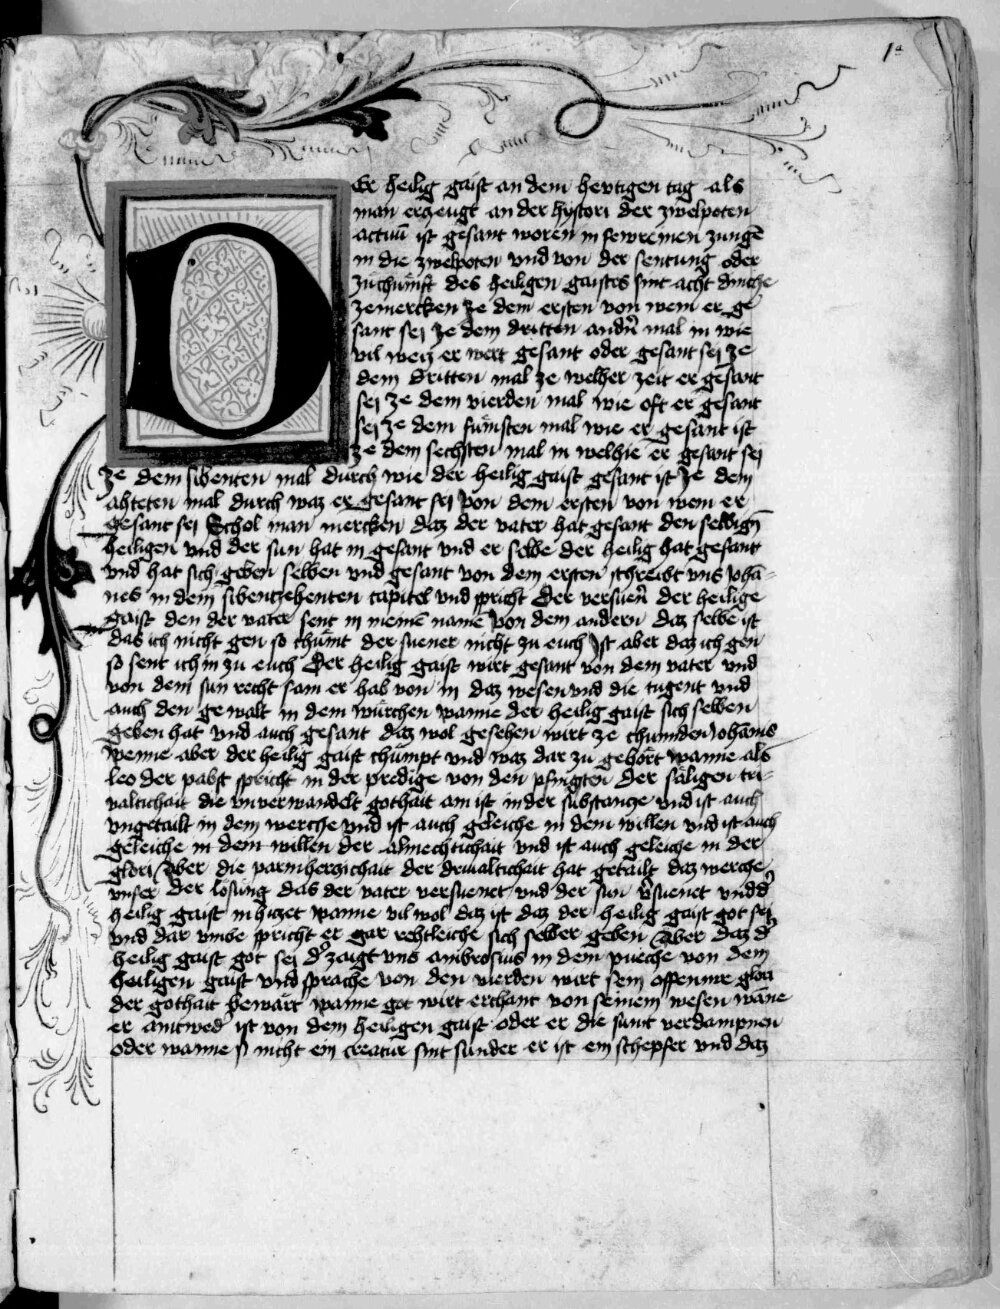 1a
Der heilig gaist an dem hevtigen tag als
man erzeugt an der hystori der zwelpoten
actuū ist gesant woren in fewreinen zungē
in die zwelpoten vnd von der sentung oder
zuͤchunft des heiligen gaistes sint acht dinche
zemercken ze dem ersten von wem er ge
sant sei ze dem dritten andn̄ mal in wie
vil weis er wert gesant oder gesant sei ze
dem dritten mal ze welher zeit er gesant
sei ze dem vierden mal wie oft er gesant
sei ze dem fuͤnften mal wie er gesant ist
ze dem sechsten mal in welhie er gesant sei
ze dem sibenten mal durch wie der heilig gaist gesant ist Ze dem
achteten mal durch waz er gesant sei Von dem ersten von wem er
gesant sei Schol man mercken daz der vater hat gesant den seldign̄
heiligen vnd der sun hat in gesant vnd er selbe der heilig hat gesant
vnd hat sich geben selben vnd gesant von dem ersten schreibt vns Johā=
nes in dem sibentzehenten capitel vnd spricht Der versuen̄ der heilige
gaist den der vater sent in meinē name Von dem andern daz selbe ist
das ich nicht gen so chuͤmt der suener nicht zu euch Ist aber daz ich gen
so sent ich in zu euch Der heilig gaist wirt gesant von dem vater vnd
von dem sun recht sam er hab von in daz wesen vnd die tugent vnd
auch den gewalt in dem wuͤrchen wanne der heilig gaist sich selben
geben hat vnd auch gesant daz wol gesehen wirt ze chumden Johānis
Wenne aber der heilig gaist chuͤmpt vnd waz dar zu gehoͤrt wanne als
leo der pabst spricht in der predige von den pfingsten der saͤligen tri=
ualtichait die vnverwandelt gothait ain ist in der substancze vnd ist auch
vngetailt in dem werche vnd ist auch geleiche in dem willen vnd ist auch
geleiche in dem willen der almechtichait vnd ist auch geleiche in der
glori Aber die parmherzichait der driualtichait hat getailt daz werche
vnser der loͤsung das der vater versuenet vnd der sun v̄suenet vnd d̾
heilig gaist in hiczet wanne vil wol daz ist daz der heilig gaist got sei
vnd dar vmbe spricht er gar rehtleiche sich selber geben Aber daz d̾
heilig gaist got sei d̾ zaigt vns ambrosius in dem pueche von dem
heiligen gaist vnd sprache von den vierden wirt sein offenwre glori
der gothait bewaͤrt wanne got wirt erchant von seinem wesen wāne
er aintwed̾ ist von dem heiligen gaist oder er die sunt verdampnen
oder wanne si nicht ein creatur sint sunder er ist ein schepfer vnd daz